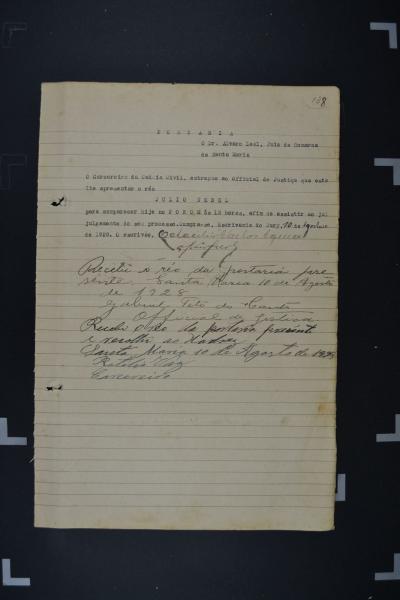 108
PORTARIA
O Dr. Alvaro Leal, Juiz da Comarca
de Santa Maria
O Carcereiro da Cadeia Civil, entregue ao Official de Justiça que este
lhe apresentar o réo
JULIO
para comparecer hoje no FORUM ás 13 horas, afim de assistir ao jul
julgamento do seu processo. Cumpra-se. Escrivania do Jury, 10 de Agosto
de 1928. O escrivão,
Recebi o réo da portaria pre
sente. Santa Maria 10 de Agosto
de 1928
Gabriel
Official de Justiça
Recebi o réo da portaria presente
e recolhi ao Xadrez
Santa Maria 10 de Agosto de 1928
Carcereiro